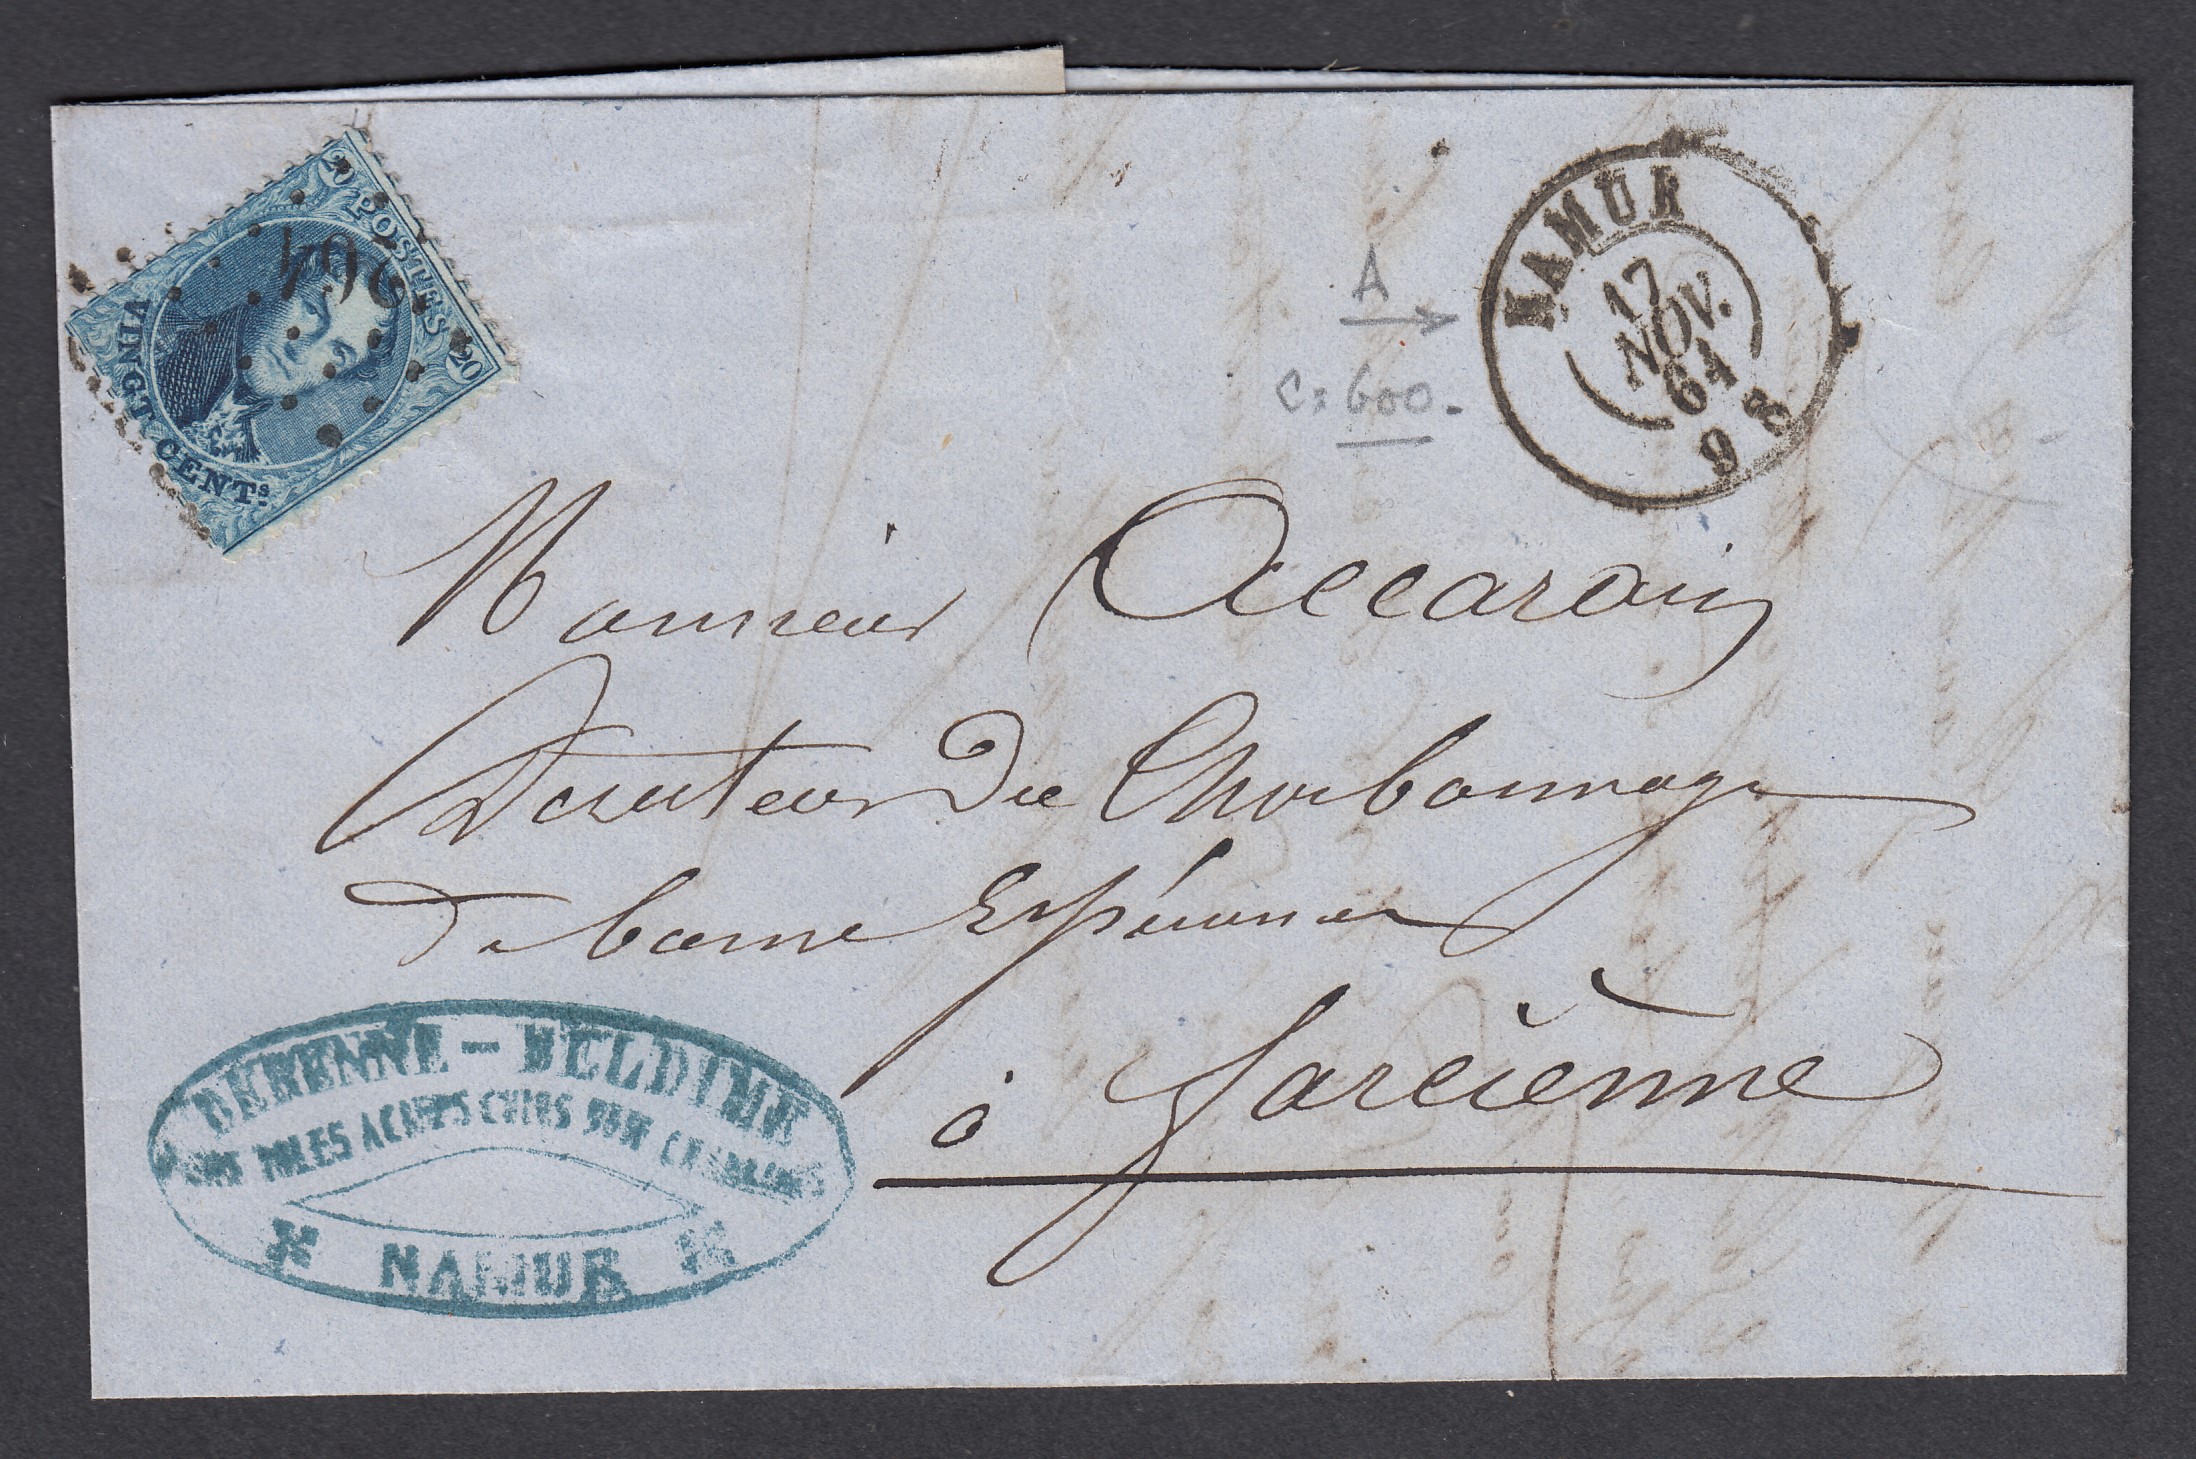 20 POSTES 20
VINGT CENTS.
264
NAMUR
17
NOV.
64
9 8
A
C: 600.-
Monsieur Accarain
Directeur Du Charbonnage
De bonne Espérance
à Farcienne
DERENNE - BELDIME
NAMUR